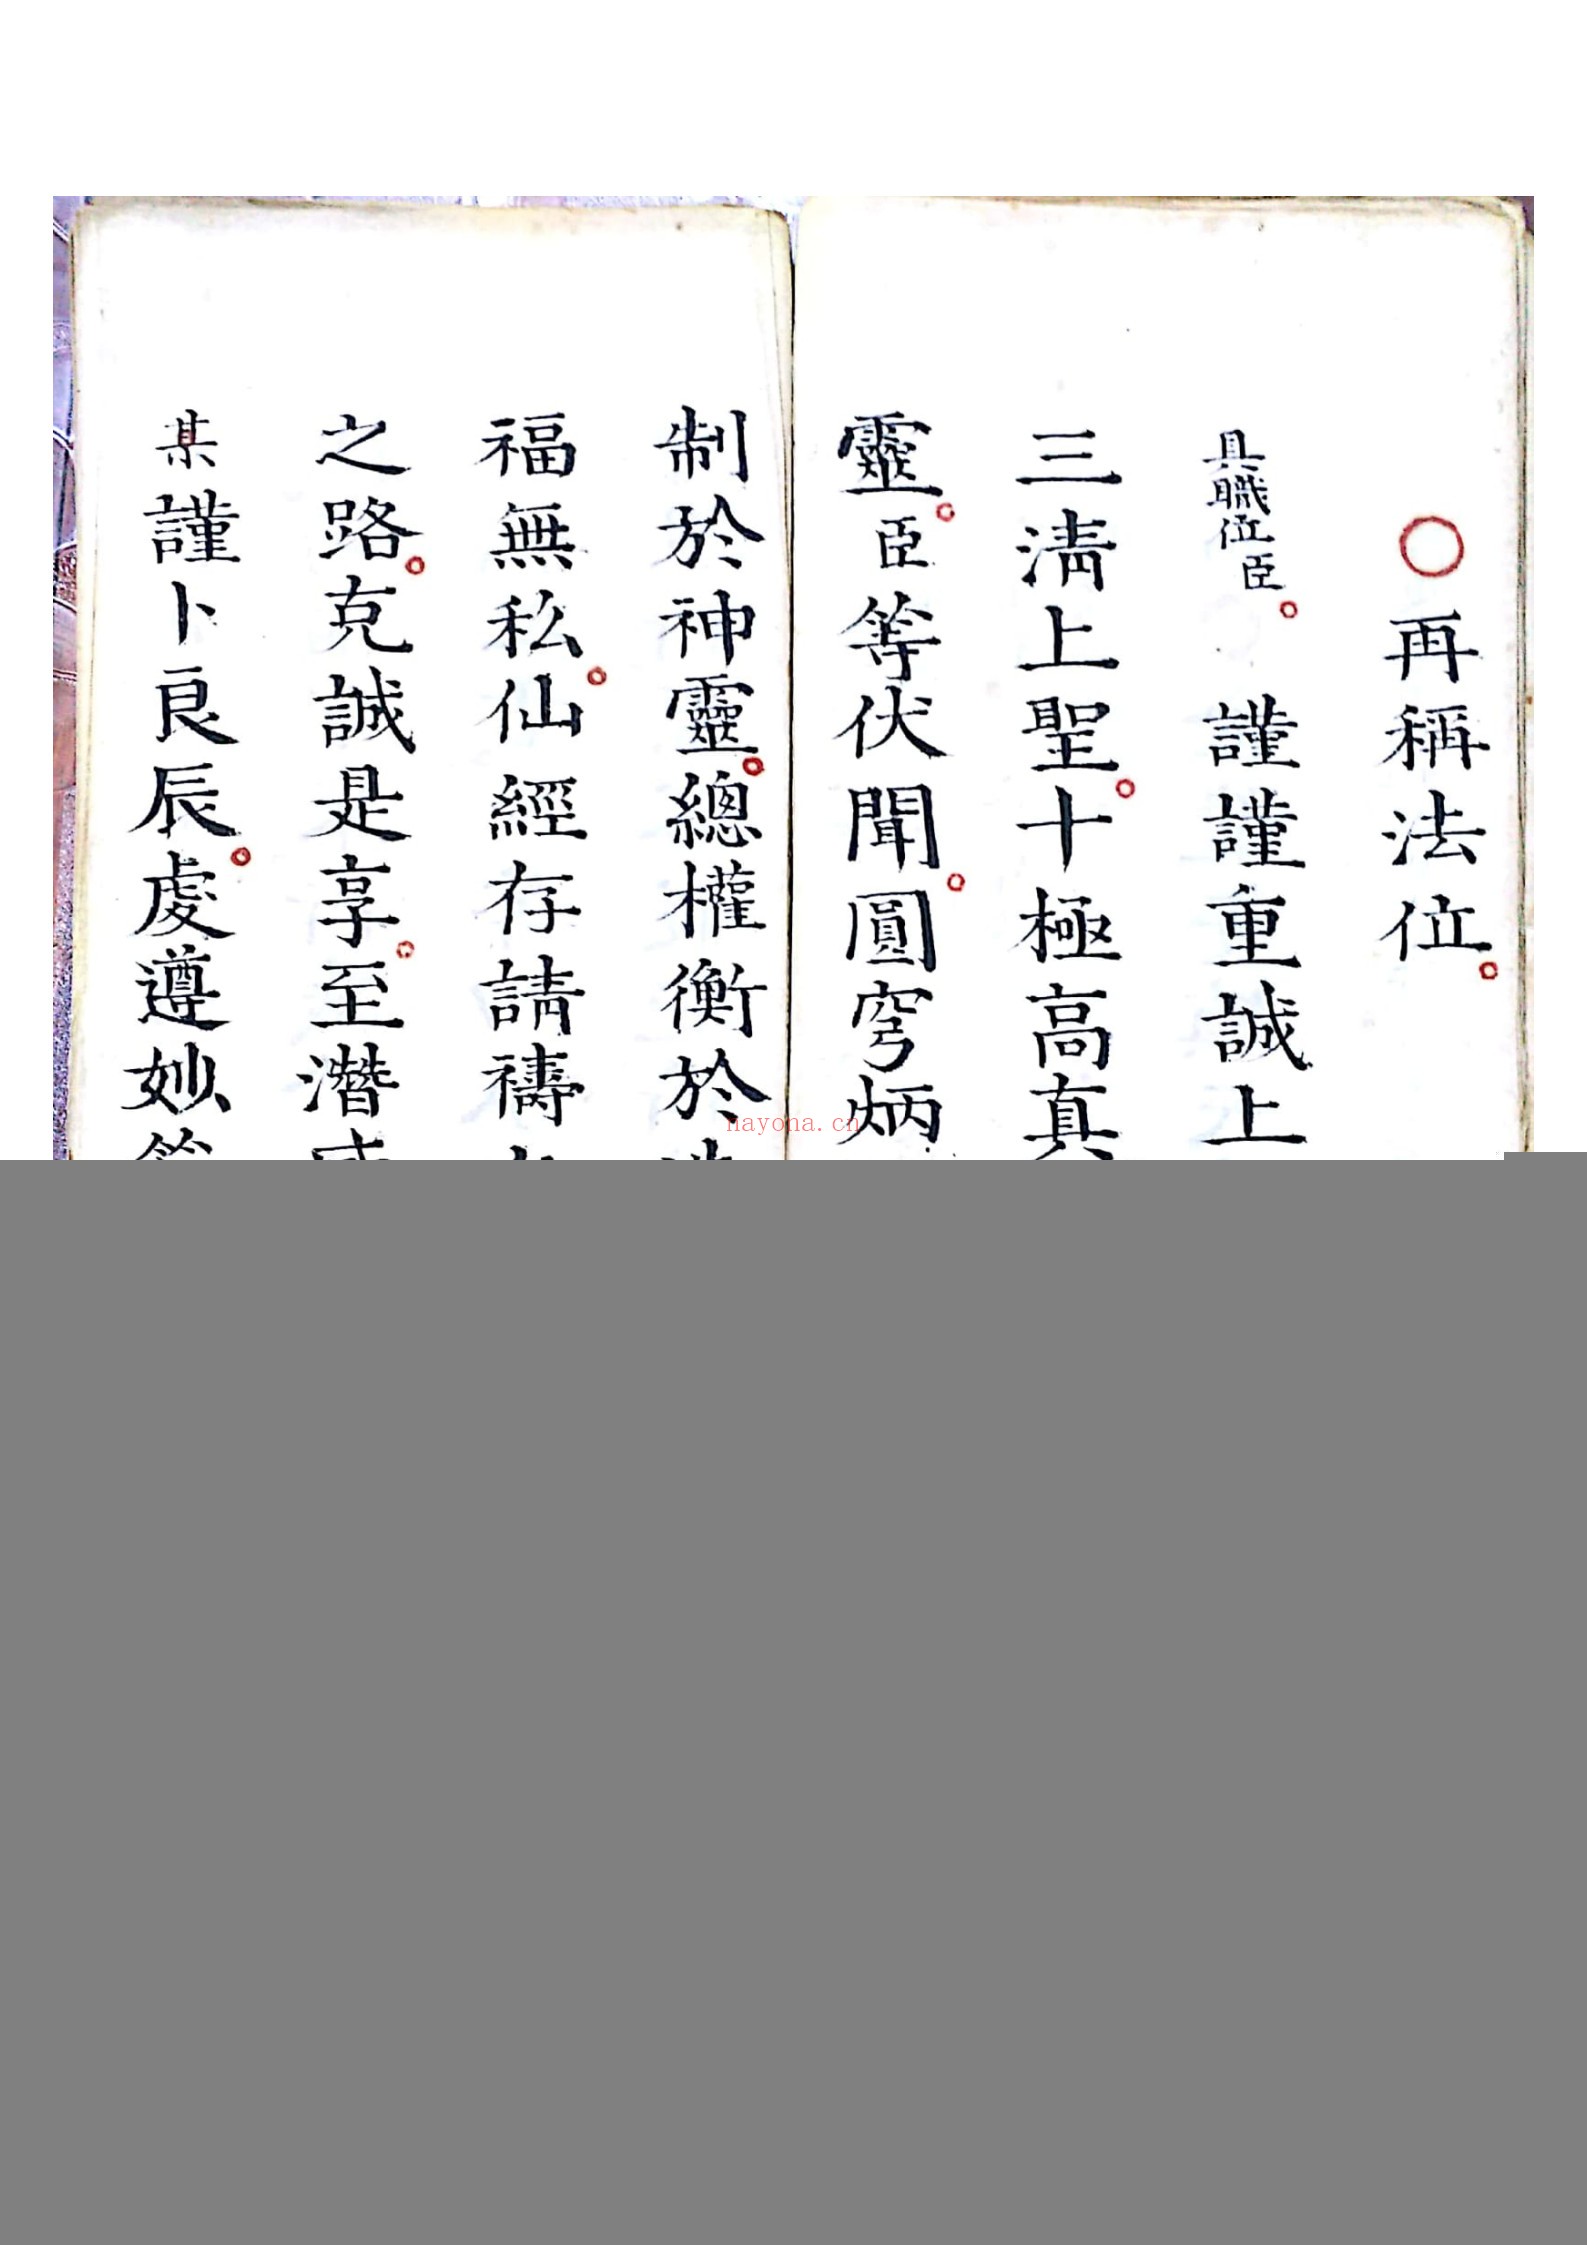 ○再稱法位。
具職位臣。謹謹重誠上
三清上聖。十極高真
靈。臣等伏聞。圓穹炳
制於神靈。總權衡於
福無私。仙經存請禱
之路。克誠是享。至潛
某謹卜良辰。虔遵妙
nayona.cn